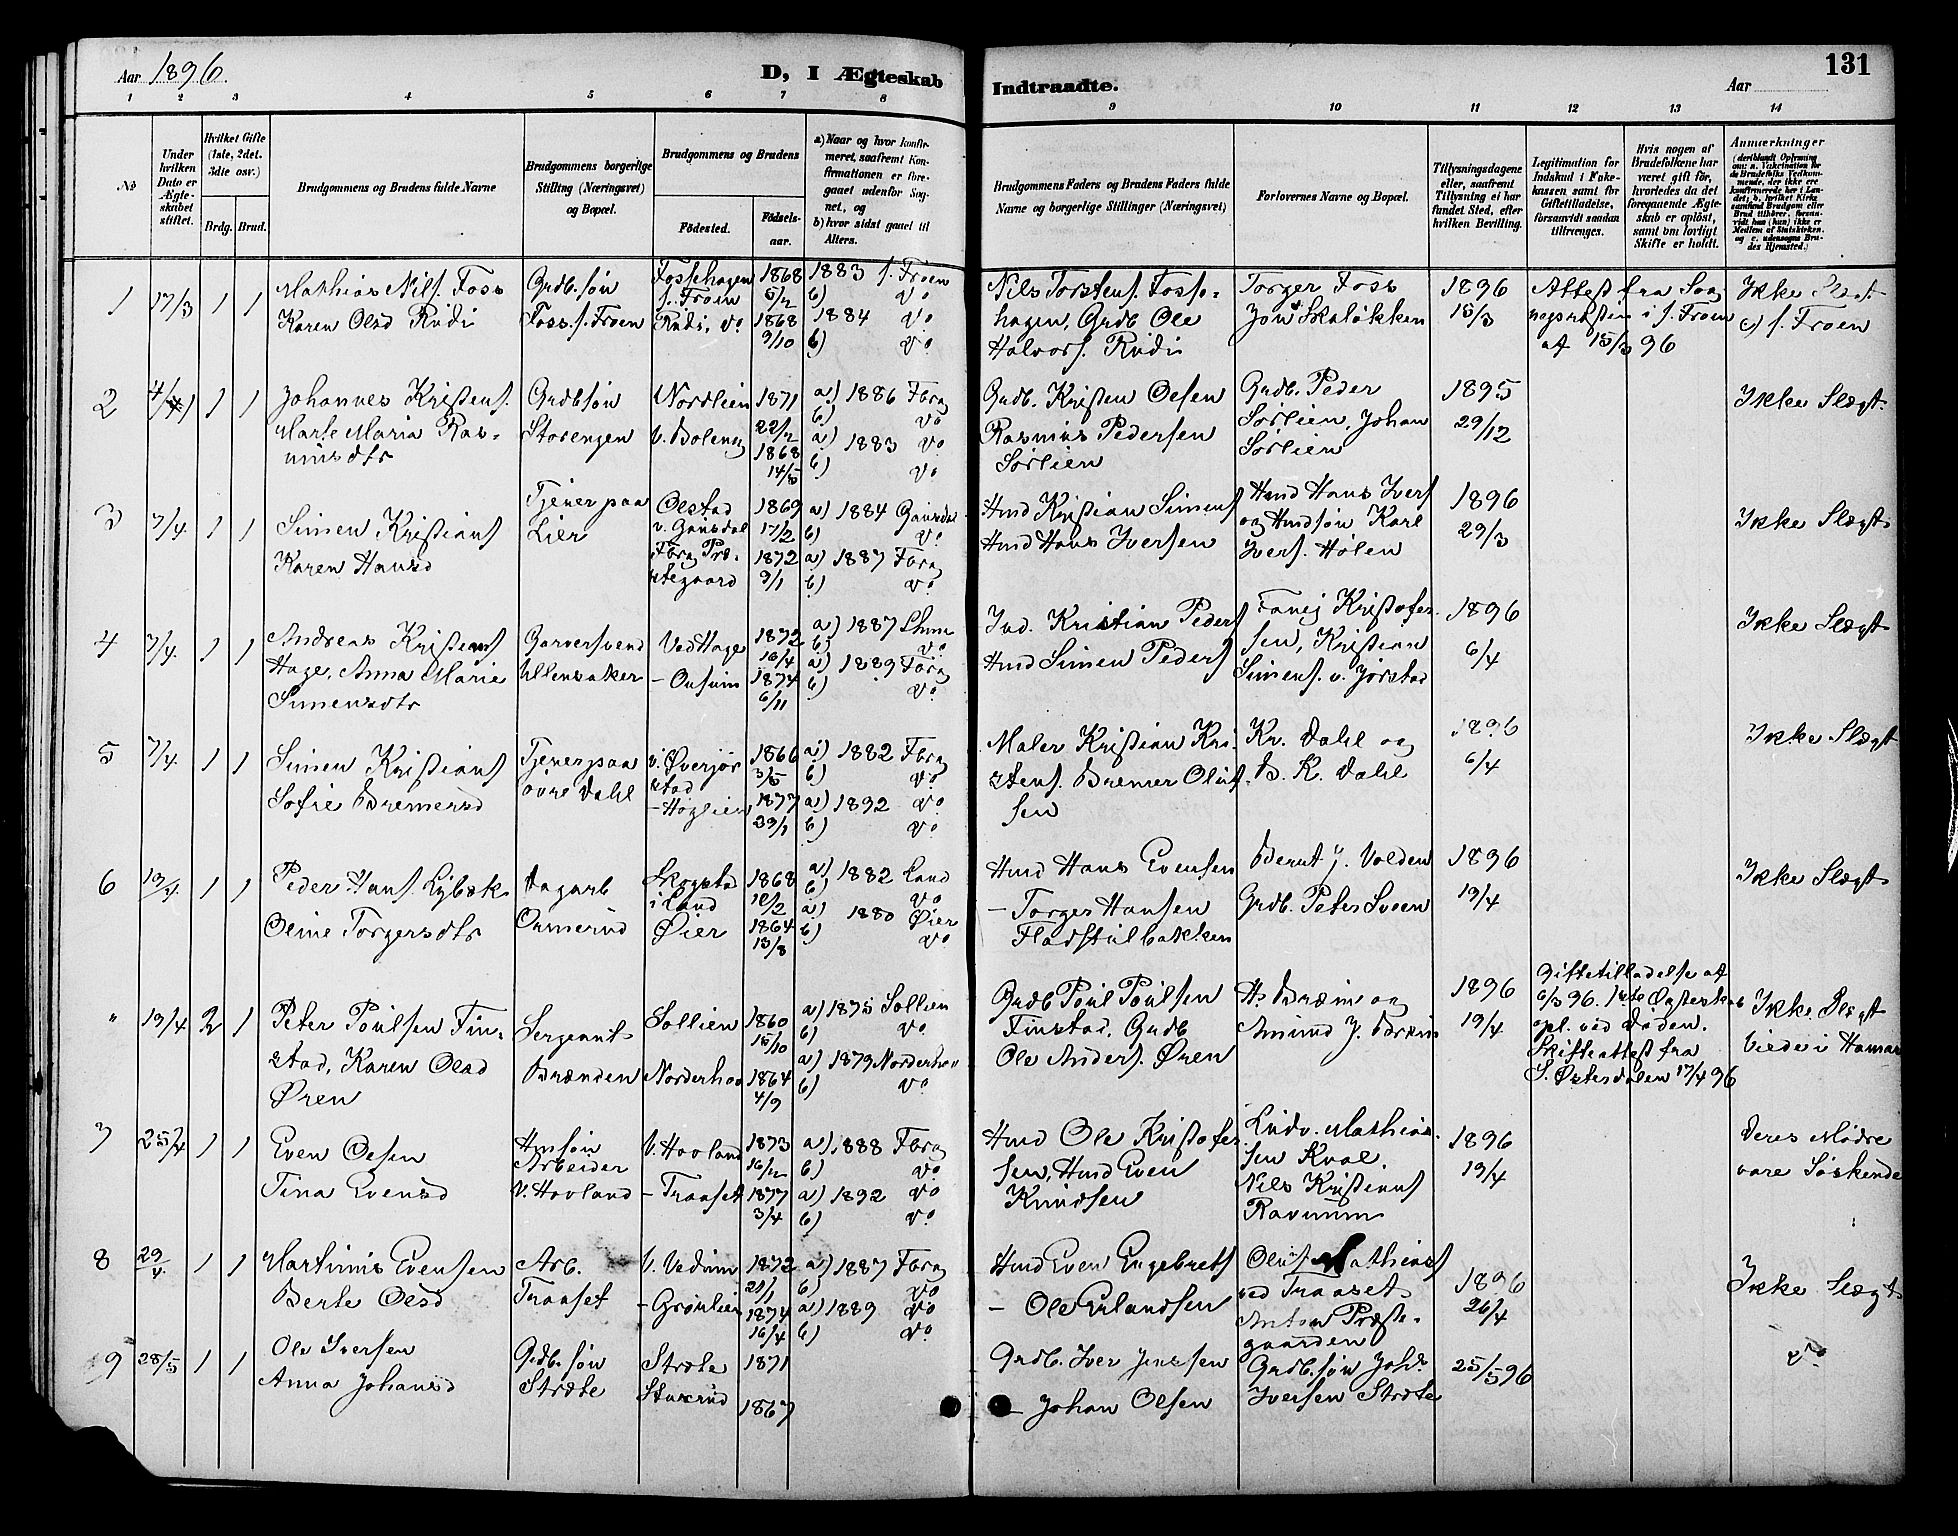 Aar 1896.
D, I Ægteskab
Indtraadte.
Aar
131
1 2 3 4 5 6 7 8
9 10 11 12 13 14
No
Under hvilken Dato er Ægteskabet stiftet.
Hvilket Gifte (1ste, 2det, 3die osv.)
Brdg. Brud.
Brudgommens og Brudens fulde Navne
Brudgommens borgerlige Stilling (Næringsvei) og Bopæl.
Brudgommens og Brudens
Fødested.
Fødselsaar.
a) Naar og hvor konfirmeret, saafremt Konfirmationen er foregaaet udenfor Sognet, og
b) hvor sidst gaaet til Alters.
Brudgommens Faders og Brudens Faders fulde Navne og borgerlige Stillinger (Næringsvei)
Forlovernes Navne og Bopæl.
Tillysningsdagene eller, saafremt Tillysning ei har fundet Sted, efter hvilken Bevilling.
Legitimation for Indskud i Enkekassen samt for Giftetilladelse, forsaavidt saadan tiltrænges.
Hvis nogen af Brudefolkene har været gift før, hvorledes da det foregaaende Ægteskab er opløst, samt om lovligt Skifte er holdt.
Anmærkninger
1 17/3 1 1
Mathias Nils. Foss
Karen Olsd Rudi
Grdb. søn
Foss. s. Froen
Fossehagen
s. Froen
Rudi, do
1868
5/2
1868
9/10
1883 s. Froen
b) do
1884 do
b) do
Nils Torstens. Fosse-
hagen, Grdb Ole
Halvors. Rudi
Torger Foss
Jon Skaløkken
1896
15/3
Attest fra Sog
nepræsten i s. Froen
af 15/3 96
Ikke Slægt
c) s. Froen
2 4/1 1 1
Johannes Kristens.
Marte Maria Ras-
musdtr
Grdbsøn
Storengen
Nordlien
v. Boleng
1871
22/2
1868
14/5
a) 1886 Fbrg
b) do
a) 1883 do
b) do
Grdb. Kristen Olsen
Rasmus Pedersen
Sørlien
Grdb. Peder
Sørlien, Johan
Sørlien
1895
29/12
Ikke Slægt.
3 7/4. 1 1
Simen Kristians
Karen Hansd
Tjener paa
Lier
Olstad
v. Gausdal
Fbrg Præ-
stegaard
1869
17/2
1872
9/1
a) 1884 Gausdal
b) do
a) 1887 Fbrg
b) do
Hmd Kristian Simens
Hmd Hans Iversen
Hmd Hans Ivers
og Hmdsøn Karl
Ivers. Hølen
1896
29/3
Ikke Slægt
4 7/4. 1 1
Andreas Kristians
Hage, Anna Marie
Simensdtr
Garversvend
Ullensaker
Ved Hage
– Onsum
1872
16/4
1874
6/11
a) 1887 Lhmr
b) do
a) 1889 Fbrg
b) do
Ind. Kristian Peders
Hmd Simen Peders
Kristofer-
sen, Kristian
Simens. v. Jørstad
1896
6/4
Ikke Slægt
5 7/4. 1 1
Simen Kristians
Sofie Bremersd
Tjener paa
øvre Dahl
v. Øverjør
stad
– Høglien
1866
3/5
1877
29/1
a) 1882 Fbrg
b) do
a) 1892 do
b) do
Maler Kristian Kri-
stens. Bremer Oluf-
sen
Kr. Dahl og
B. K. Dahl
1896
6/4
Ikke Slægt
6 19/4. 1 1
Peder Hans. Lybæk
Oline Torgersdtr
Dagarb
Onsmerud
Skogstad
i Land
Øier
1868
12/2
1864
13/8
a) 1882 Land
b) do
a) 1880 Øier
b) do
Hmd Hans Evensen
– Torger Hansen
Fladstulbakken
Bernt J. Volden
Grdb. Peter Sveen
1896
19/4
Ikke Slægt
" 19/4 2 1
Peter Poulsen Fin-
stad, Karen Olsd
Øren
Sergeant
Brænden
Sollien
Norderhov
1860
15/10
1864
4/9
a) 1875 Sollien
b) do
a) 1879 Norderhov
b) do
Grdb Poul Poulsen
Finstad, Grdb
Ole Anders. Øren
H. Bræin og
Amund J. Bræin
1896
19/4
Giftetilladelse af
6/3 96. 1ste Ægtesk.
opl. ved Døden.
Skifteattest fra
S. Østerdalen 17/4 96
Ikke Slægt
Viede i Hamar
7 25/4 1 1
Even Olsen
Tina Evensd
Hmsøn
Arbeider
v. Hovland
V. Hovland
– Traaset
1873
16/12
1877
3/4
a) 1888 Fbrg
b) do
a) 1892 do
b) do
Hmd Ole Kristofer-
sen, Hmd Even
Knudsen
Ludv. Mathias-
sen Kval.
Nils Kristians
Ravnum
1896
19/4
Deres Mødre
vare Søskende
8 29/4. 1 1
Martinus Evensen
Berte Olsd
Arb.
Traaset
V. Vedum
– Grønlien
1872
21/1
1874
16/4
a) 1887 Fbrg
b) do
a) 1889 do
b) do
Hmd Even Engebrets
– Ole Erlandsen
Oluf Mathias
ved Traaset
Anton Præste-
gaarden
1896
26/4
Ikke Slægt
9 28/5 1 1
Ole Iversen
Anna Johansd
Grdb. søn
Stræte
Stræte
Stuerud
1871
1867
Grdb. Iver Jenssen
– Johan Olsen
Grdb. søn Johs.
Iversen Stræte
25/5 96
do